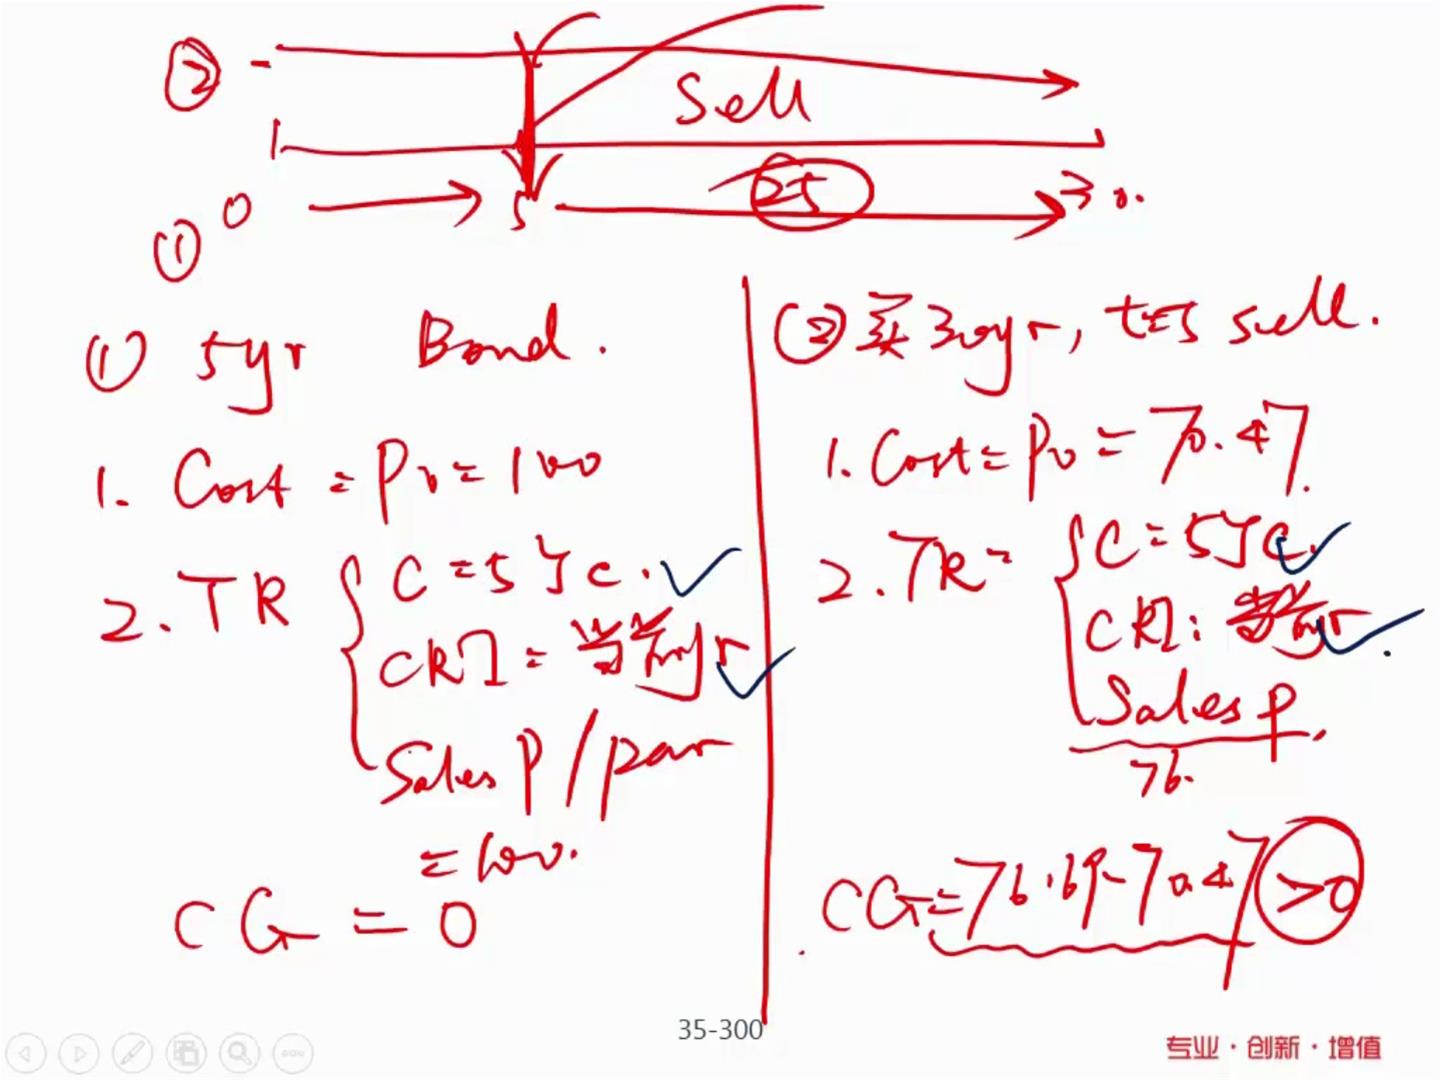 ② Sell
25
① 0 5 30.
① 5yr Bond.
1. Cost = P0 = 100
2. TR
C = 5笔 c.
CRI = 当前 yr
Sales P / par
= 100.
CG = 0
② 买30yr, t=5 sell.
1. Cost = P0 = 70.47
2. TR =
C = 5笔 c.
CRI: 当前 yr
Sales P.
76.
CG = 76.69 - 70.47 > 0
35-300
专业·创新·增值